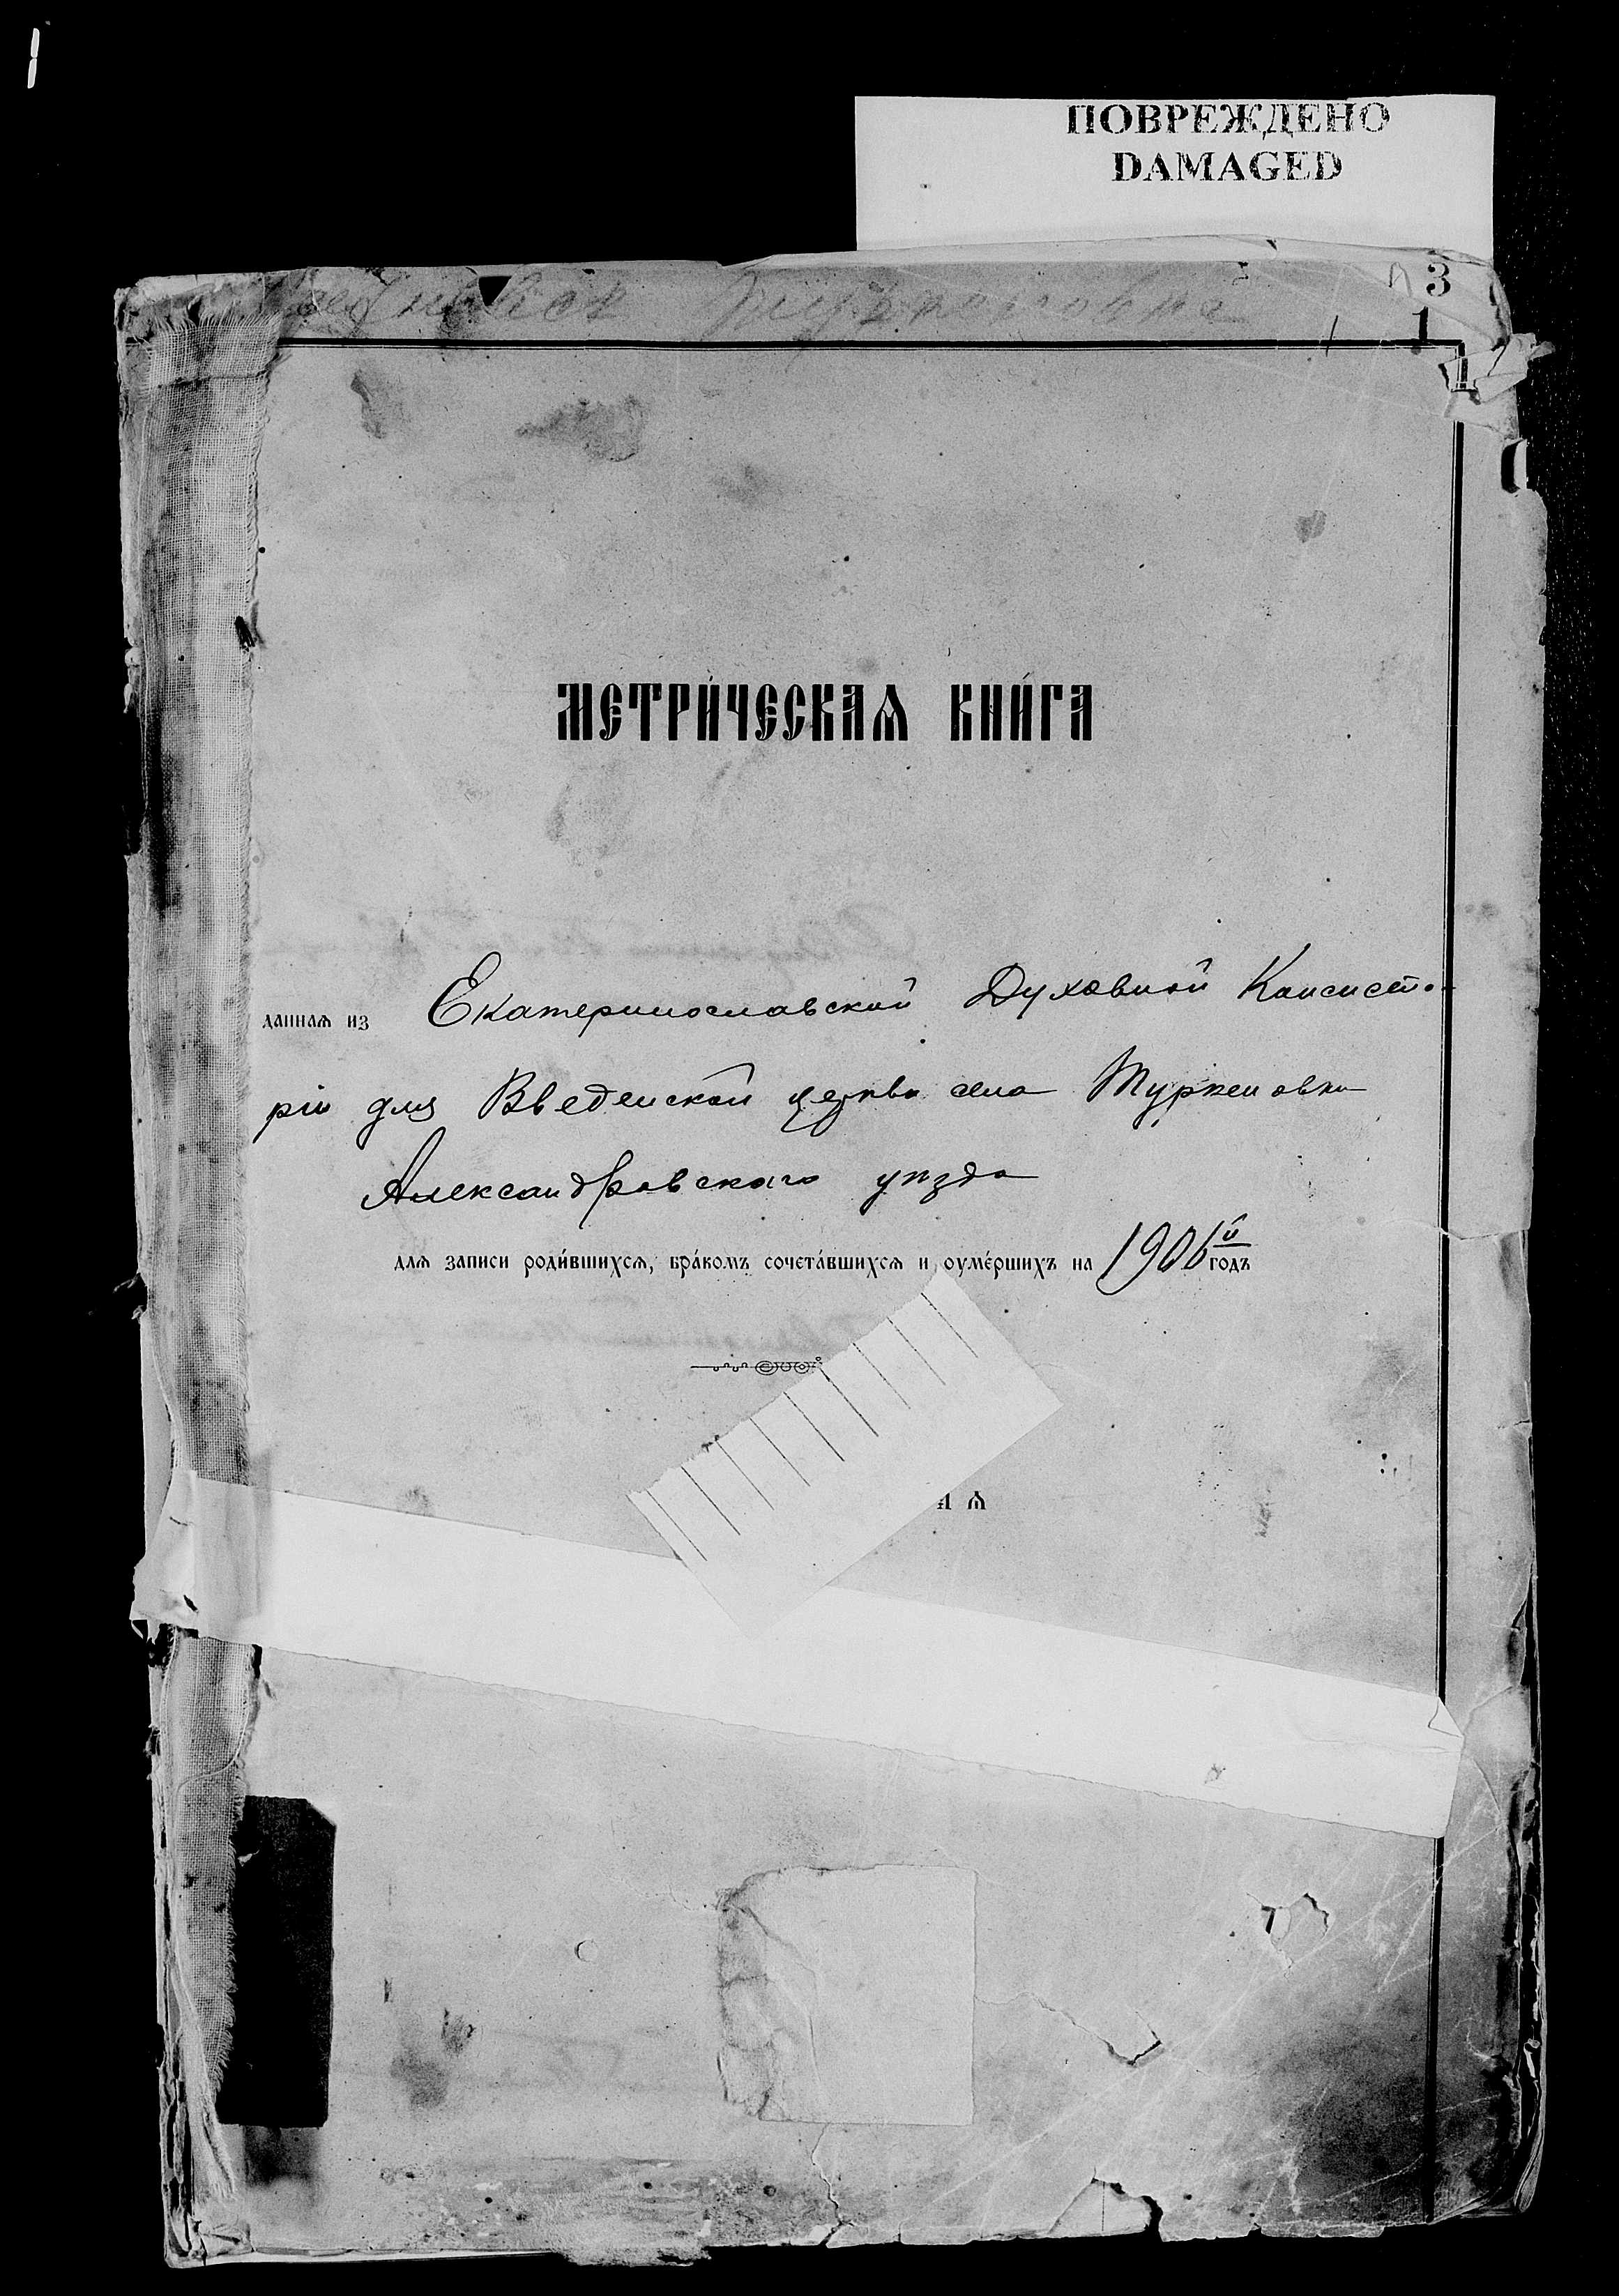 ПОВРЕЖДЕНО
DAMAGED
3
1
МЕТРИ́ЧЕСКАѦ КНИ́ГА
даннаѧ из Екатеринославской Духовной Консисто-
ріи для Введенской церкви села Туркеновки
Александровскаго уѣзда
длѧ записи роди́вшихсѧ, бра́комъ сочета́вшихсѧ и оуме́ршихъ на 1906й годъ
А Ѧ